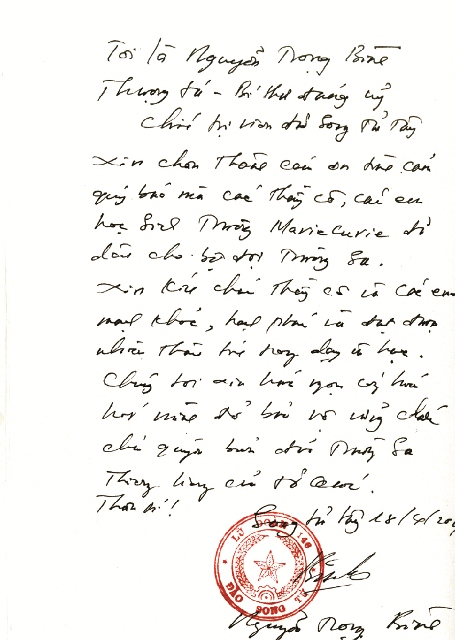 Tôi là Nguyễn Trọng Bình
Thượng tá - Bí thư đảng ủy
Chính trị viên đảo Song Tử Tây
xin chân thành cảm ơn tình cảm
quý báu mà các Thầy cô, các em
học sinh Trường MarieCurie đã
dành cho bộ đội Trường Sa.
xin kính chúc Thầy cô và các em
mạnh khỏe, hạnh phúc và đạt được
nhiều thành tích trong dạy và học.
Chúng tôi xin hứa
để bảo vệ vững chắc
chủ quyền biển đảo Trường Sa
Thiêng liêng của tổ quốc.
Thân ái!!
Song tử tây 18/4/20
LỮ ĐOÀN 146
Nguyễn Trọng Bình